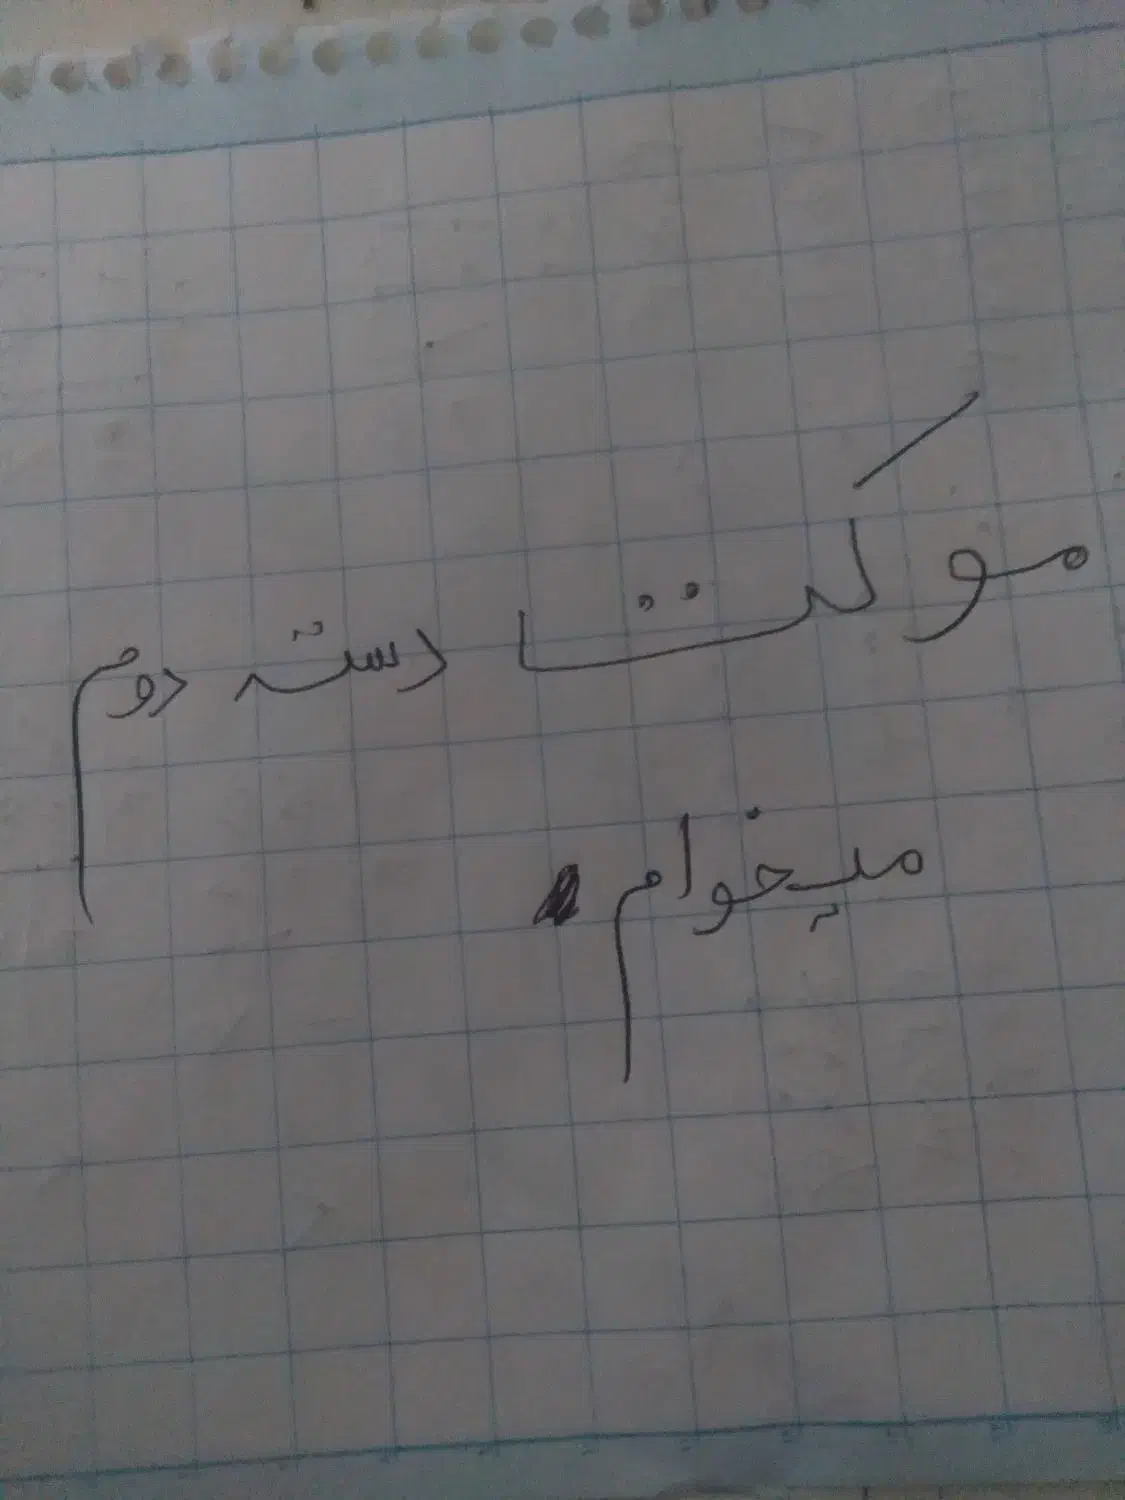 موکت دسته دوم
میخوام